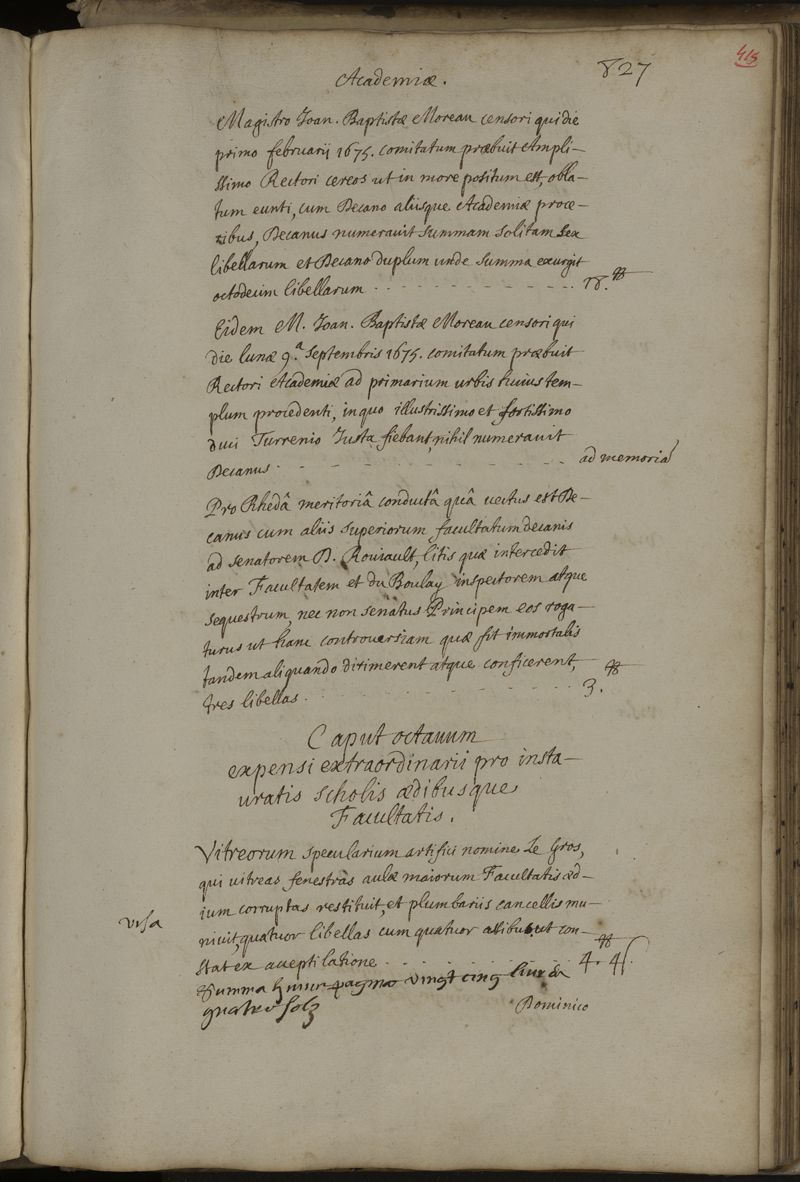 415
827
Academiæ.
Magistro Joan. Baptistæ Moreau censori qui die
primo februarij 1675. comitatum præbuit Ampli-
ssimo Rectori cereos ut in more positum est, obla-
tum eunti, cum Decano aliisque Academiæ proce-
ribus, Decanus numerauit summam solitam sex
libellarum et Decano duplum unde summa exurgit
octodecim libellarum - - - - - - - - - - - - 18.ₜₜ
Eidem M. Joan. Baptistæ Moreau censori qui
die lunæ 9.ª Septembris 1675. comitatum præbuit
Rectori Academiæ ad primarium urbis huius tem-
plum procedenti, in quo illustrissimo et fortissimo
duci Turrenio Justa fiebant, nihil numerauit
Decanus - - - - - - - - - - - ad memoriã
Pro Rhedâ meritoriâ conductâ quâ uectus est De-
canus cum aliis superiorum facultatum decanis
ad senatorem D. Rouiault, litis quæ intercedit
inter Facultatem et du Boulay inspectorem atque
sequestrum, nec non senatus Principem eos roga-
turus ut hanc controuersiam quæ fit immortalis
tandem aliquando dirimerent atque conficerent,
tres libellas - - - - - - - - - - - - 3.ₜₜ
Caput octauum
expensi extraordinarii pro insta-
uratis scholis ædibusque
Facultatis.
Vitreorum specularium artifici nomine Le Gros,
qui uitreas fenestras aulæ maiorum Facultatis æd-
ium corruptas restituit, et plumbariis cancellis mu-
niuit, quatuor libellas cum quatuor assibus ut con-
stat ex acceptilatione - - - - - - 4.ₜₜ 4ſ.
visa
Summa huius paginæ vingt cinq liures
quatre solz
Dominico